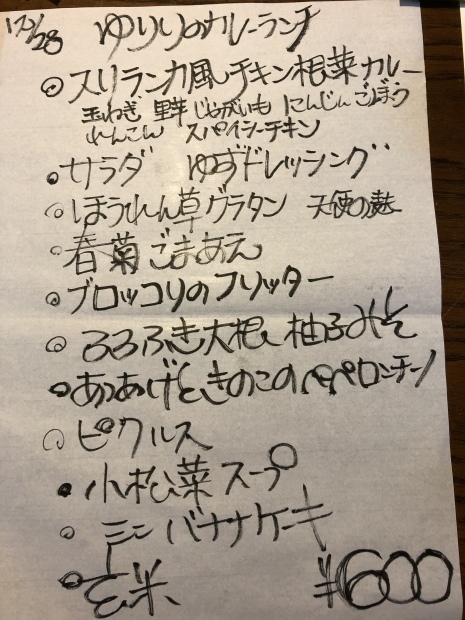 12/28 ゆりりのカレーランチ
スリランカ風チキン根菜カレー
玉ねぎ 里芋 じゃがいも にんじん ごぼう
れんこん スパイシーチキン
サラダ ゆずドレッシング
ほうれん草グラタン 天使の麩
春菊ごまあえ
ブロッコリのフリッター
ふろふき大根 柚子みそ
あつあげときのこのペペロンチーノ
ピクルス
小松菜スープ
ミニバナナケーキ
玄米 ¥600